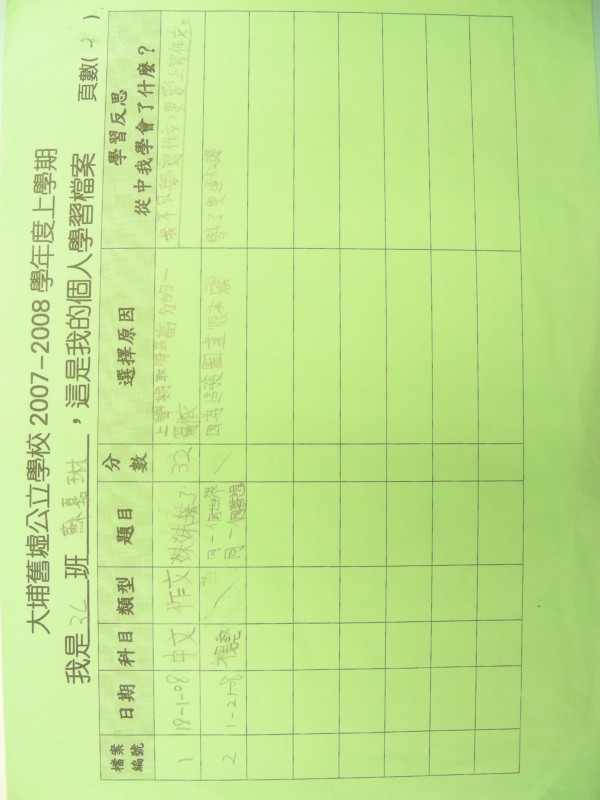 大埔舊墟公立學校 2007-2008 學年度上學期
我是 3C 班 蘇嘉琳 ，這是我的個人學習檔案 頁數( 1 )
檔案編號 日期 科目 類型 題目 分數 選擇原因 學習反思
從中我學會了什麼？
1 18-1-08 中文 作文 32 上學期取得高分的一
我不只學習作文,更愛上寫作文。
2 1-2-08 視藝 同一個世界
同一個夢想 因為這張圖畫很